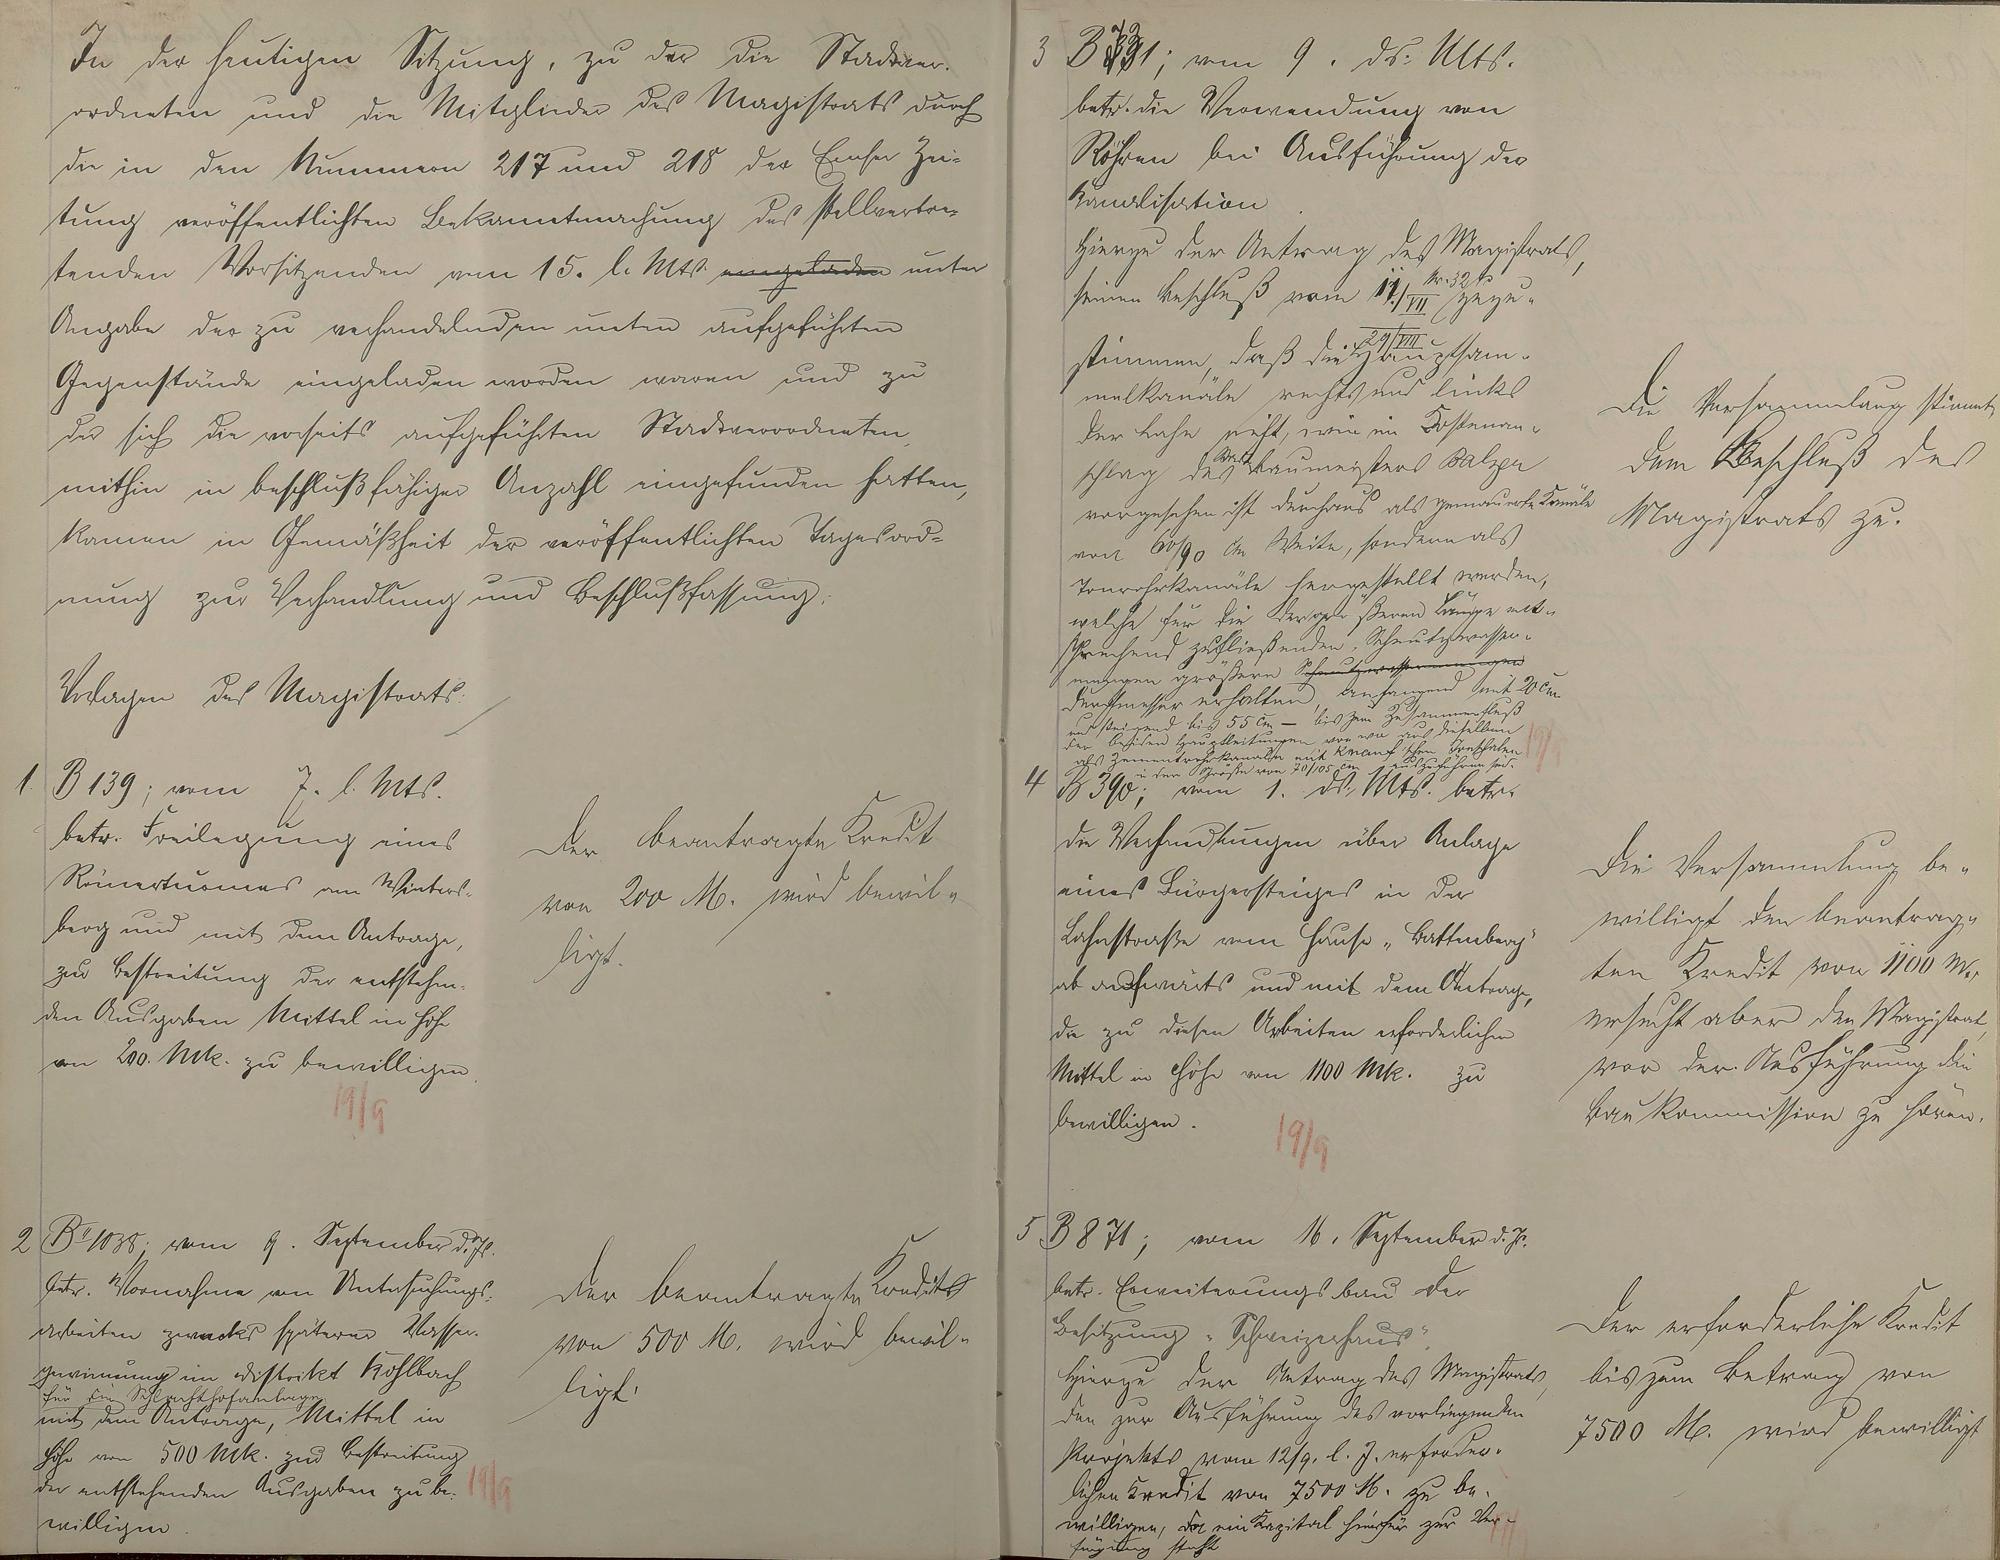 In der heutigen Sitzung, zu der die Stadtver-
ordneten und die Mitglieder des Magistrats durch
die in den Nummern 217 und 218 der Emser Zei-
tung veröffentlichten Bekanntmachung des stellvertre-
tenden Vorsitzenden vom 15. l. Mts. eingeladen unter
Angabe der zu verhandelnden unten aufgeführten
Gegenstände eingeladen worden waren und zu
der sich die vorseits aufgeführten Stadtverordneten,
mithin in beschlußfähiger Anzahl eingefunden hatten,
kamen in Gemäßheit der veröffentlichten Tagesord-
nung zur Verhandlung und Beschlußfassung:
Vorlagen des Magistrats:
1. B 139; vom 7. l. Mts.
betr. Freilegung eines
Römerturmes am Winters-
berg und mit dem Antrage,
zur Bestreitung der entstehen-
den Ausgaben Mittel in Höhe
von 200. Mk. zu bewilligen.
19/9
Der beantragte Kredit
von 200 M. wird bewil-
ligt.
2 B" 1038; vom 9. September d. Js.
betr. Vornahme von Untersuchungs-
arbeiten zwecks späterer Wasser-
gewinnung im Distrikt Kohlbach
für die Schlachthofanlage
mit dem Antrage, Mittel in
Höhe von 500 Mk. zur Bestreitung
der entstehenden Ausgaben zu be-
willigen.
19/9
Der beantragte Kredit
von 500 M. wird bewil-
ligt.
3 B 31; vom 9. ds. Mts.
betr. die Verwendung von
Röhren bei Ausführung der
Kanalisation.
Hierzu der Antrag des Magistrats,
seinen Beschluß vom 11./VII Nr. 32 zuzu-
29/VIII
stimmen, daß die Hauptsam-
melkanäle rechts und links
der Lahn nicht, wie im Kostenan-
schlag des Baumeisters Balzer
vorgesehen ist durchaus als gemauerte Kanäle
von 60/90 cm Weite, sondern als
Tonrohrkanäle hergestellt werden,
welche für die der größeren Länge ent-
sprechend zufließenden Schmutzwasser-
mengen größeren Schmutzwassermengen
Durchmesser erhalten anfangend mit 20 cm
und steigend bis 55 cm – bis zum Zusammenfluß
der beiden Hauptleitungen von wo aus dieselben
als Zementrohrkanäle mit Knauf'schen Tonschalen
in der Größe von 70/105 cm auszuführen sind.
19/9
Die Versammlung stimmt
dem Beschluß des
Magistrats zu.
4 B 390; vom 1. ds. Mts. betr.
die Verhandlungen über Anlage
eines Bürgersteiges in der
Lahnstraße vom Hause „Battenberg"
ab aufwärts und mit dem Antrage,
die zu diesen Arbeiten erforderlichen
Mittel in Höhe von 1100 Mk. zu
bewilligen.
19/9
Die Versammlung be-
willigt den beantrag-
ten Kredit von 1100 M.,
ersucht aber den Magistrat,
vor der Ausführung die
Baukommission zu hören.
5 B 871; vom 16. September d. Js.
betr. Erweiterungsbau der
Besitzung „Schweizerhaus".
Hierzu der Antrag des Magistrats,
den zur Ausführung des vorliegenden
Projekts vom 12/9. l. J. erforder-
lichen Kredit von 7500 M. zu be-
willigen, da ein Kapital hierfür zur Ver-
fügung steht
Der erforderliche Kredit
bis zum Betrag von
7500 M. wird bewilligt